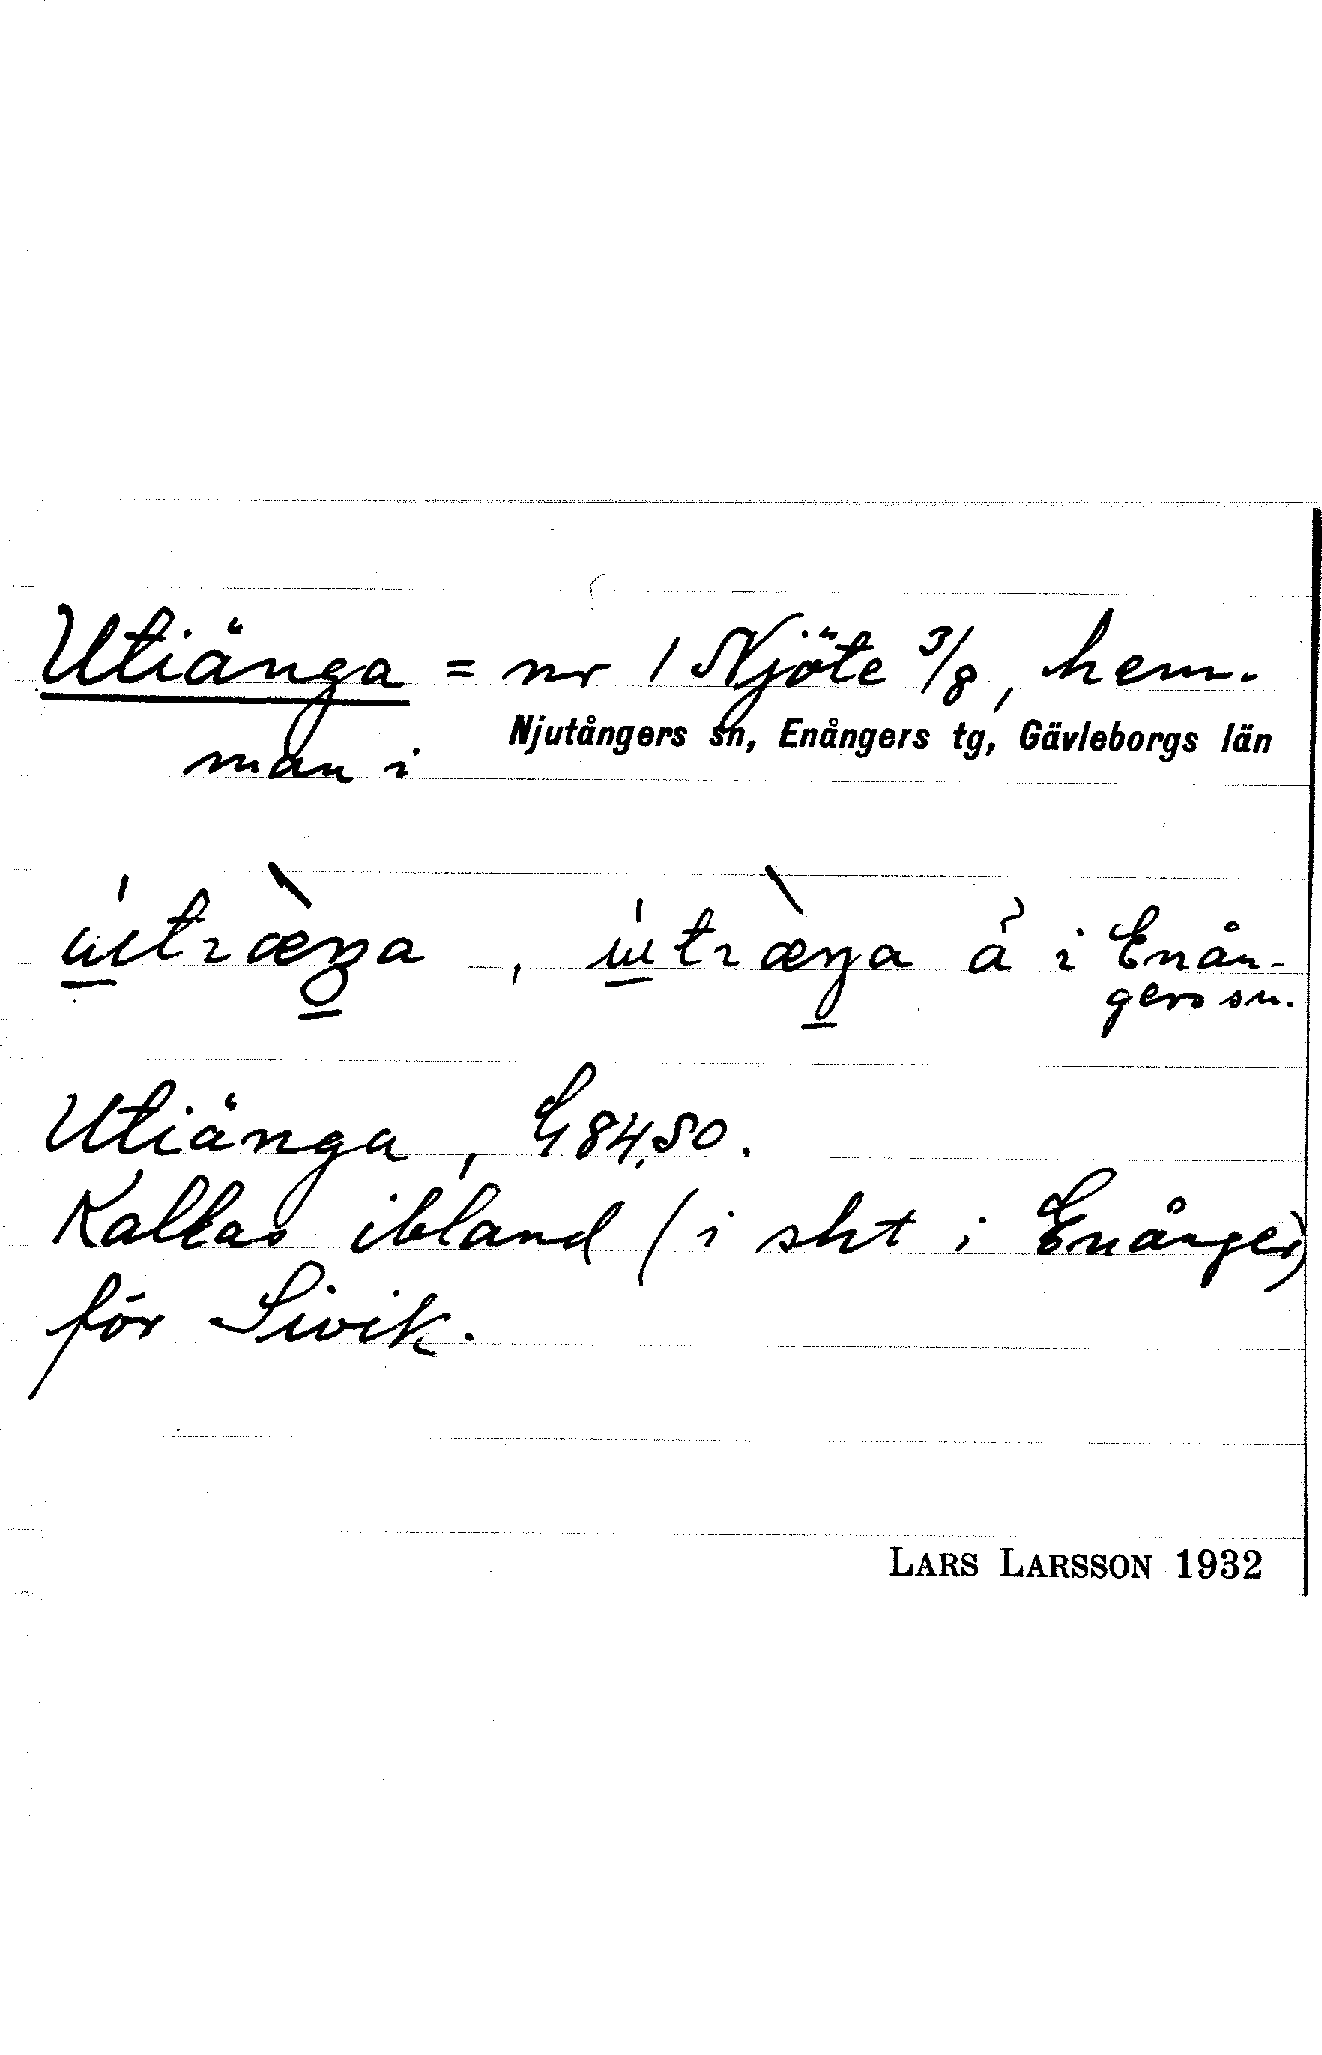 Utiänga = nr 1 Njöte 3/8, hem-
man i Njutångers sn, Enångers tg, Gävleborgs län
å i Enån-
gers sn.
Utiänga, G84,50.
Kallas ibland (i sht i Enånger)
för Sivik.
LARS LARSSON 1932